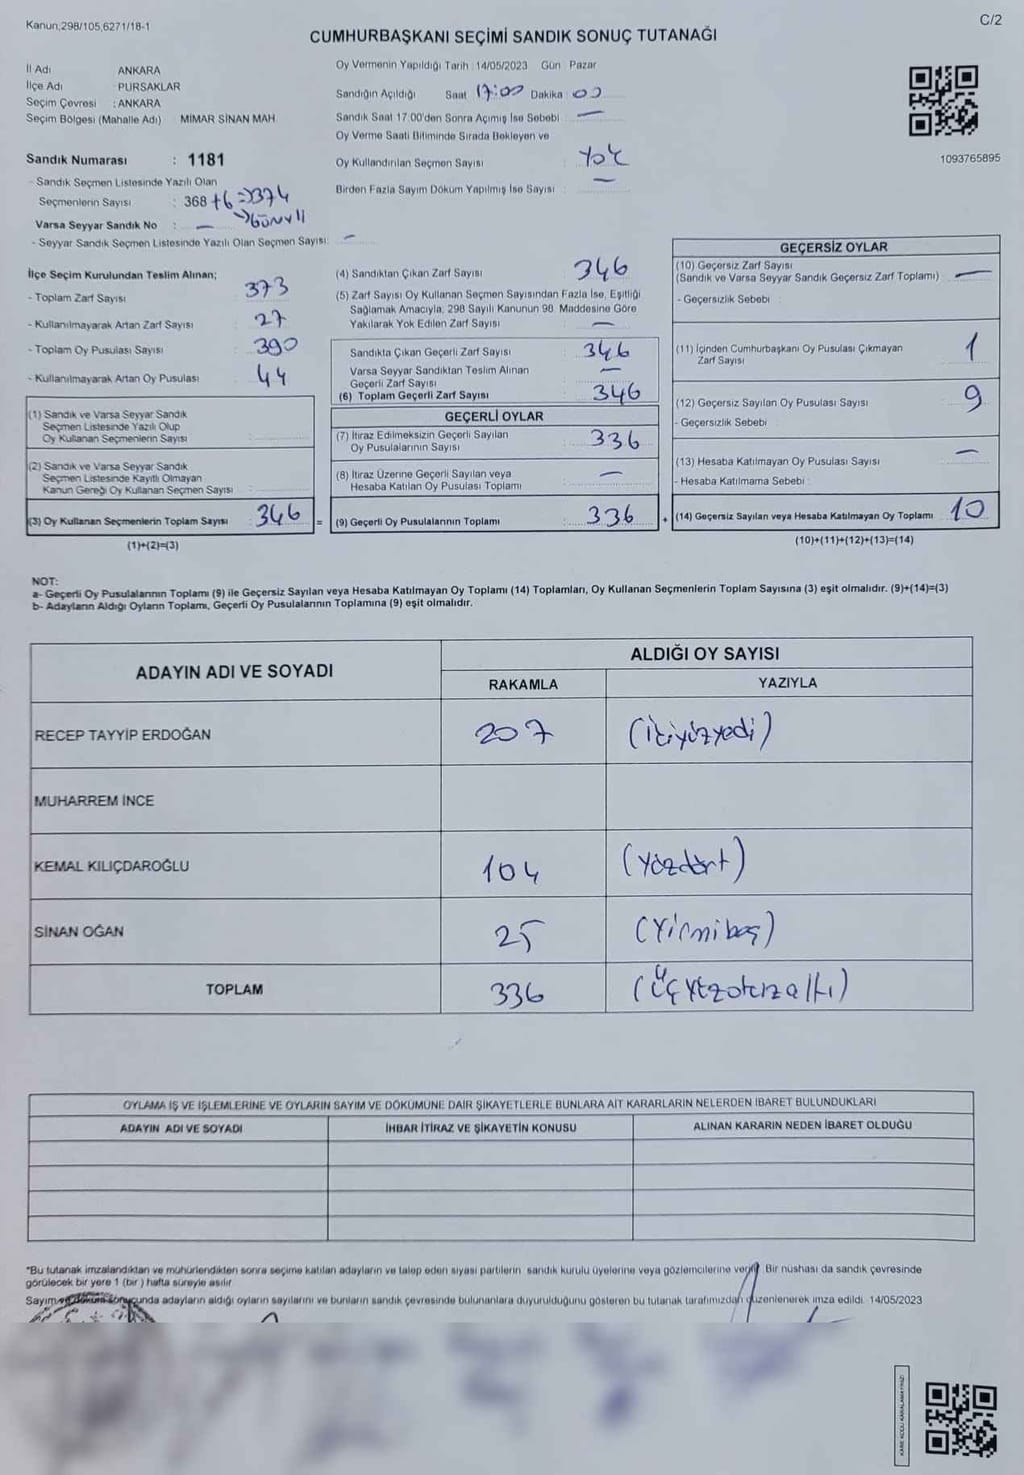 Kanun;298/105,6271/18-1
C/2
CUMHURBAŞKANI SEÇİMİ SANDIK SONUÇ TUTANAĞI
İl Adı ANKARA
İlçe Adı PURSAKLAR
Seçim Çevresi : ANKARA
Seçim Bölgesi (Mahalle Adı) MİMAR SİNAN MAH.
Sandık Numarası : 1181
- Sandık Seçmen Listesinde Yazılı Olan
Seçmenlerin Sayısı : 368 +6 => 374
Varsa Seyyar Sandık No : —
- Seyyar Sandık Seçmen Listesinde Yazılı Olan Seçmen Sayısı: —
Oy Vermenin Yapıldığı Tarih : 14/05/2023 Gün Pazar
Sandığın Açıldığı Saat 17:00 Dakika 00
Sandık Saat 17.00'den Sonra Açımış İse Sebebi : —
Oy Verme Saati Bitiminde Sırada Bekleyen ve
Oy Kullandırılan Seçmen Sayısı : Yok
Birden Fazla Sayım Döküm Yapılmış İse Sayısı : —
1093765895
İlçe Seçim Kurulundan Teslim Alınan;
- Toplam Zarf Sayısı : 373
- Kullanılmayarak Artan Zarf Sayısı : 27
- Toplam Oy Pusulası Sayısı : 390
- Kullanılmayarak Artan Oy Pusulası : 44
(1) Sandık ve Varsa Seyyar Sandık
Seçmen Listesinde Yazılı Olup
Oy Kullanan Seçmenlerin Sayısı
(2) Sandık ve Varsa Seyyar Sandık
Seçmen Listesinde Kayıtlı Olmayan
Kanun Gereği Oy Kullanan Seçmen Sayısı
(3) Oy Kullanan Seçmenlerin Toplam Sayısı : 346 =
(1)+(2)=(3)
(4) Sandıktan Çıkan Zarf Sayısı 346
(5) Zarf Sayısı Oy Kullanan Seçmen Sayısından Fazla İse, Eşitliği
Sağlamak Amacıyla, 298 Sayılı Kanunun 98. Maddesine Göre
Yakılarak Yok Edilen Zarf Sayısı : —
Sandıkta Çıkan Geçerli Zarf Sayısı : 346
Varsa Seyyar Sandıktan Teslim Alınan
Geçerli Zarf Sayısı : —
(6) Toplam Geçerli Zarf Sayısı : 346
GEÇERLİ OYLAR
(7) İtiraz Edilmeksizin Geçerli Sayılan
Oy Pusulalarının Sayısı : 336
(8) İtiraz Üzerine Geçerli Sayılan veya
Hesaba Katılan Oy Pusulası Toplamı : —
(9) Geçerli Oy Pusulalarının Toplamı : 336 +
GEÇERSİZ OYLAR
(10) Geçersiz Zarf Sayısı
(Sandık ve Varsa Seyyar Sandık Geçersiz Zarf Toplamı) : —
- Geçersizlik Sebebi :
(11) İçinden Cumhurbaşkanı Oy Pusulası Çıkmayan
Zarf Sayısı 1
(12) Geçersiz Sayılan Oy Pusulası Sayısı : 9
- Geçersizlik Sebebi :
(13) Hesaba Katılmayan Oy Pusulası Sayısı : —
- Hesaba Katılmama Sebebi :
(14) Geçersiz Sayılan veya Hesaba Katılmayan Oy Toplamı 10
(10)+(11)+(12)+(13)=(14)
NOT:
a- Geçerli Oy Pusulalarının Toplamı (9) ile Geçersiz Sayılan veya Hesaba Katılmayan Oy Toplamı (14) Toplamları, Oy Kullanan Seçmenlerin Toplam Sayısına (3) eşit olmalıdır. (9)+(14)=(3)
b- Adayların Aldığı Oyların Toplamı, Geçerli Oy Pusulalarının Toplamına (9) eşit olmalıdır.
ADAYIN ADI VE SOYADI
ALDIĞI OY SAYISI
RAKAMLA YAZIYLA
RECEP TAYYİP ERDOĞAN 207 (ikiyüzyedi)
MUHARREM İNCE
KEMAL KILIÇDAROĞLU 104 (yüzdört)
SİNAN OĞAN 25 (Yirmibeş)
TOPLAM 336 (Üçyüzotuzaltı)
OYLAMA İŞ VE İŞLEMLERİNE VE OYLARIN SAYIM VE DÖKÜMÜNE DAİR ŞİKAYETLERLE BUNLARA AİT KARARLARIN NELERDEN İBARET BULUNDUKLARI
ADAYIN ADI VE SOYADI İHBAR İTİRAZ VE ŞİKAYETİN KONUSU ALINAN KARARIN NEDEN İBARET OLDUĞU
*Bu tutanak imzalandıktan ve mühürlendikten sonra seçime katılan adayların ve talep eden siyasi partilerin sandık kurulu üyelerine veya gözlemcilerine verilir. Bir nüshası da sandık çevresinde
görülecek bir yere 1 (bir ) hafta süreyle asılır.
Sayım ve döküm sonucunda adayların aldığı oyların sayılarını ve bunların sandık çevresinde bulunanlara duyurulduğunu gösteren bu tutanak tarafımızdan düzenlenerek imza edildi. 14/05/2023